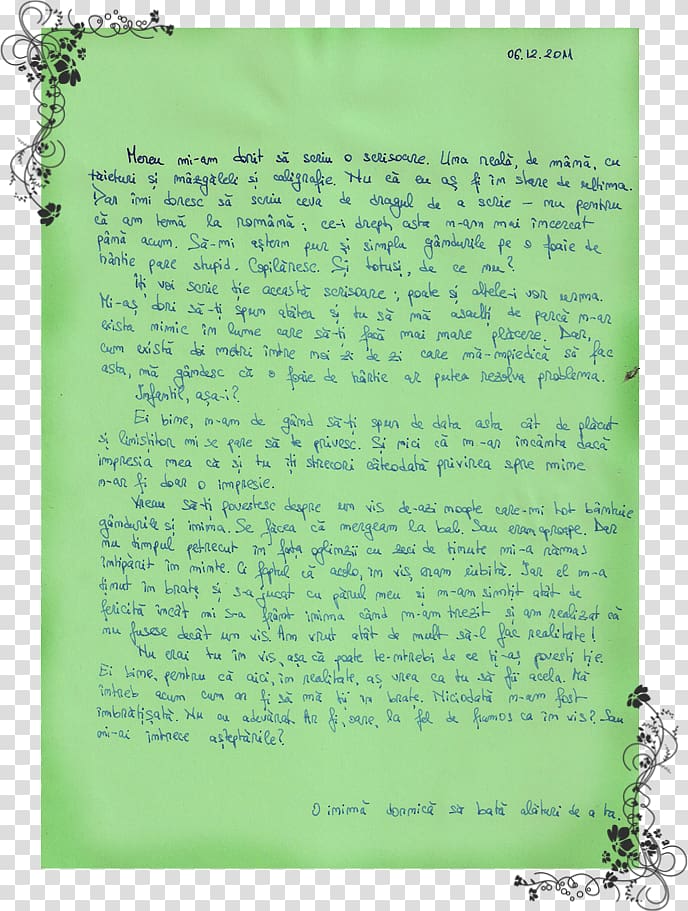 06.12.2011
Mereu mi-am dorit să scriu o scrisoare. Una reală, de mână, cu
tăieturi și mâzgăleli și caligrafie. Nu că eu aș fi în stare de ultima.
Dar îmi doresc să scriu ceva de dragul de a scrie – nu pentru
că am temă la română; ce-i drept, asta n-am mai încercat
până acum. Să-mi aștern pur și simplu gândurile pe o foaie de
hârtie pare stupid. Copilăresc. Și totuși, de ce nu?
Îți voi scrie ție această scrisoare; poate și altele-i vor urma.
Mi-aș dori să-ți spun atâtea și tu să mă asculți de parcă n-ar
exista nimic în lume care să-ți facă mai mare plăcere. Dar,
cum există doi metri între noi zi de zi care mă-mpiedică să fac
asta, mă gândesc că o foaie de hârtie ar putea rezolva problema.
Infantil, așa-i?
Ei bine, n-am de gând să-ți spun de data asta cât de plăcut
și liniștitor mi se pare să te privesc. Și nici că m-ar încânta dacă
impresia mea că și tu îți strecori câteodată privirea spre mine
n-ar fi doar o impresie.
Vreau să-ți povestesc despre un vis de-azi noapte care-mi tot bântuie
gândurile și inima. Se făcea că mergeam la bal. Sau eram aproape. Dar
nu timpul petrecut în fața oglinzii cu zeci de ținute mi-a rămas
întipărit în minte. Ci faptul că acolo, în vis, eram iubită. Iar el m-a
ținut în brațe și s-a jucat cu părul meu și m-am simțit atât de
fericită încât mi s-a frânt inima când m-am trezit și am realizat că
nu fusese decât un vis. Am vrut atât de mult să-l fac realitate!
Nu erai tu în vis, așa că poate te-ntrebi de ce ți-aș povesti ție.
Ei bine, pentru că aici, în realitate, aș vrea ca tu să fii acela. Mă
întreb acum cum ar fi să mă ții în brațe. Niciodată n-am fost
îmbrățișată. Nu cu adevărat. Ar fi, oare, la fel de frumos ca în vis? Sau
mi-ai întrece așteptările?
O inimă dornică să bată alături de a ta.